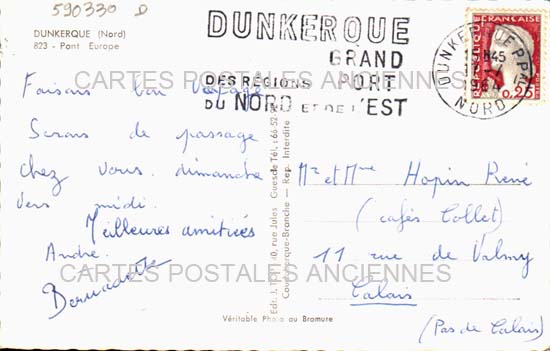 590330 D
DUNKERQUE (Nord)
823 - Pont Europe
DUNKERQUE
GRAND
DES RÉGIONS PORT
DU NORD ET DE L'EST
RÉPUBLIQUE FRANÇAISE
0,25
DUNKERQUE PPAL
15H45
1964
NORD
CARTES POSTALES ANCIENNES
Faisons bon voyage
Serons de passage
chez vous dimanche
vers midi.
Meilleures amitiés
André.
Bernadette
Edit. J. 40, rue Jules Guesde Tél. : 66-52
Coudekerque-Branche — Rep. Interdite
Mr et Mme Hopin René
(cafés Collet)
11 rue de Valmy
Calais
(Pas de Calais)
CARTES POSTALES ANCIENNES
Véritable Photo au Bromure